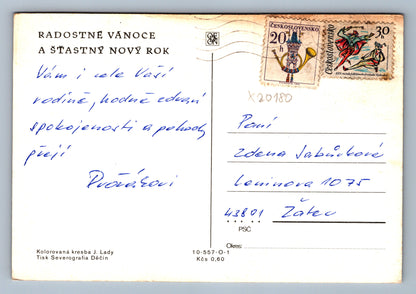 RADOSTNÉ VÁNOCE
A ŠŤASTNÝ NOVÝ ROK
Vám i celé Vaší
rodině, hodně zdraví
spokojenosti a pohody
přejí
ČESKOSLOVENSKO
20 h
Československo
30
Paní
Zdena
Leninova 1075
43801 Žatec
PSČ
Okres:
Kolorovaná kresba J. Lady
Tisk Severografia Děčín
10-557-0-1
Kčs 0,60